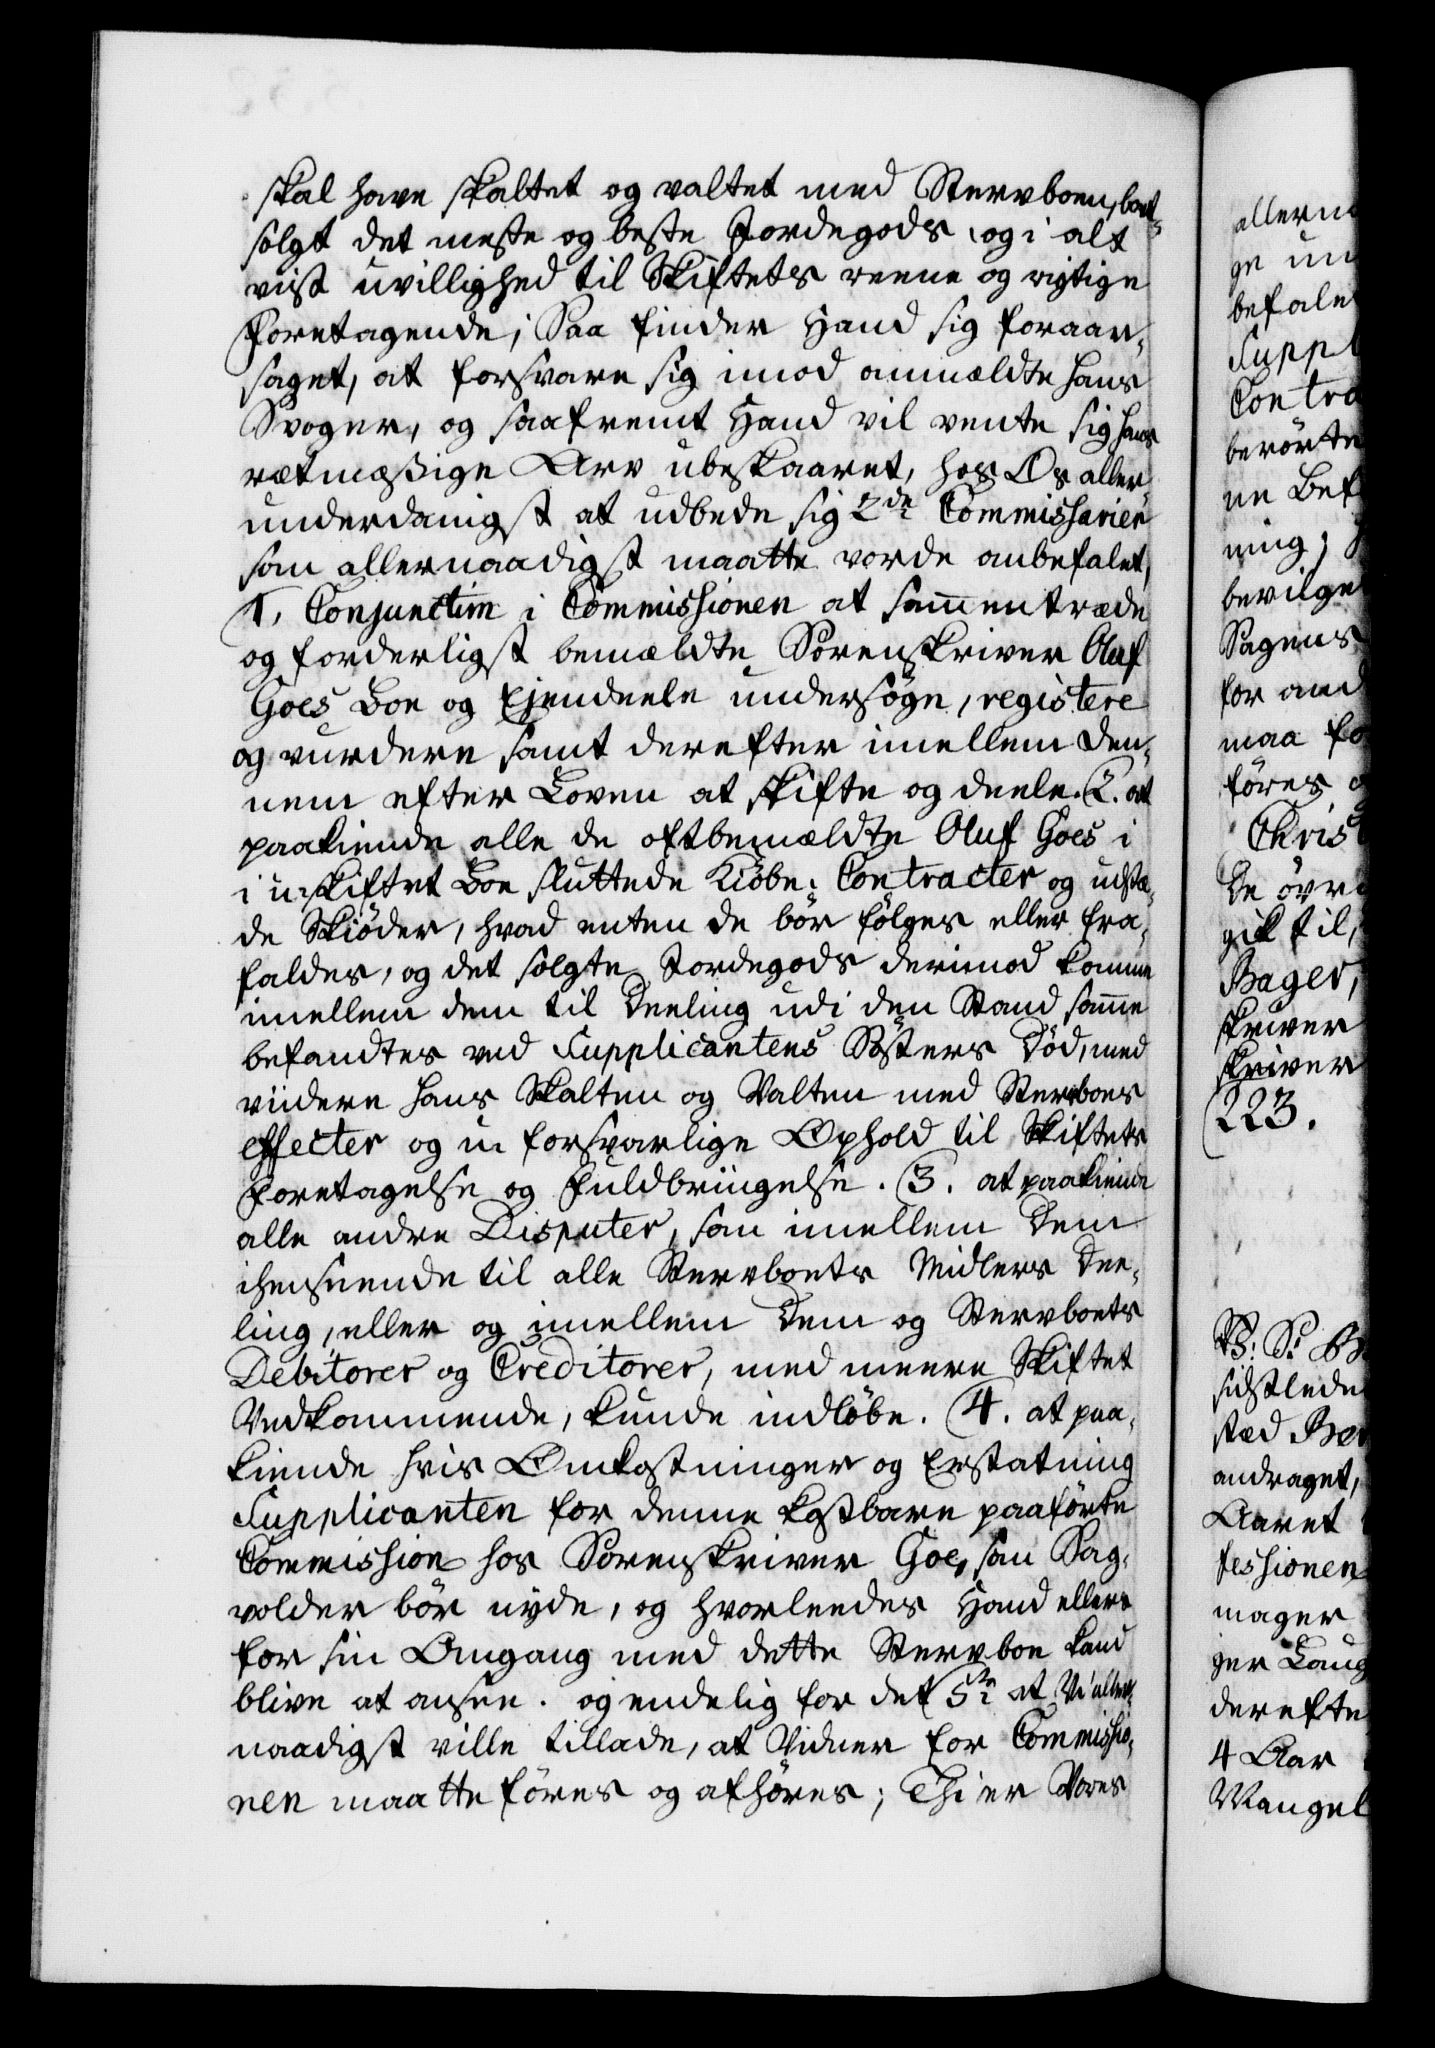 skal have skaltet og valtet med Stervboen, bort-
solgt det meste og beste Jordegods, og i alt
viist uvillighed til Skiftets reene og rigtige
Foretagende; Saa finder Hand sig foraar-
saget, at forsvare sig imod anmældte hans
Svoger, og saafremt Hand vil vente sig hans
retmæssige Arv ubeskaaret, hos Os aller-
underdanigst at udbede sig 2de Commissarier
som allernaadigst maatte vorde anbefalet,
1. Conjunctim i Commissionen at sammentræde
og forderligst bemældte Sorenskriver Oluf
Goes Boe og Ejendeele undersøge, registere
og vurdere samt derefter imellem den-
nem efter Loven at skifte og deele. 2. at
paakiende alle de oftbemældte Oluf Goes i
i u-skiftet Boe sluttede Kiøbe-Contracter og udstæ-
de Skiøder, hvad enten de bør følges eller fra-
faldes, og det solgte Jordegods derimod komme
imellem dem til Deeling udi den Stand samme
befandtes ved Supplicantens Søsters Død, med
viidere hans Skalten og Valten med Stervboes
effecter og u-forsvarlige Ophold til Skiftets
Foretagelse og Fuldbringelse. 3. at paakiende
alle andre Disputer, som imellem Dem
ihenseende til alle Stervboets Midlers Dee-
ling, eller og imellem Dem og Stervboets
Debitorer og Creditorer, med meere Skiftet
Vedkommende, kunde indløbe. 4. at paa-
kiende hvis Omkostninger og Erstatning
Supplicanten for denne kostbare paaførte
Commission hos Sorenskriver Goe, som Sag-
volder bør nyde, og hvorleedes Hand ellers
for sin Omgang med dette Stervboe kand
blive at ansee. og endelig for det 5te at Vi aller-
naadigst ville tillade, at Vidner for Commissio-
nen maatte føres og afhøres; Thi er Vores
allern
ge un
befale
Suppl
Contra
berørte
ne Bef
ning;
bevilge
Sagens
for and
maa fo
føres
Christ
De øvr
gik til,
Bager,
skriver
skriver
223.
sidstlede
stæd
andraget,
Aaret
fessionen
mager
ger Laug
derefte
4 Aar
Mangel